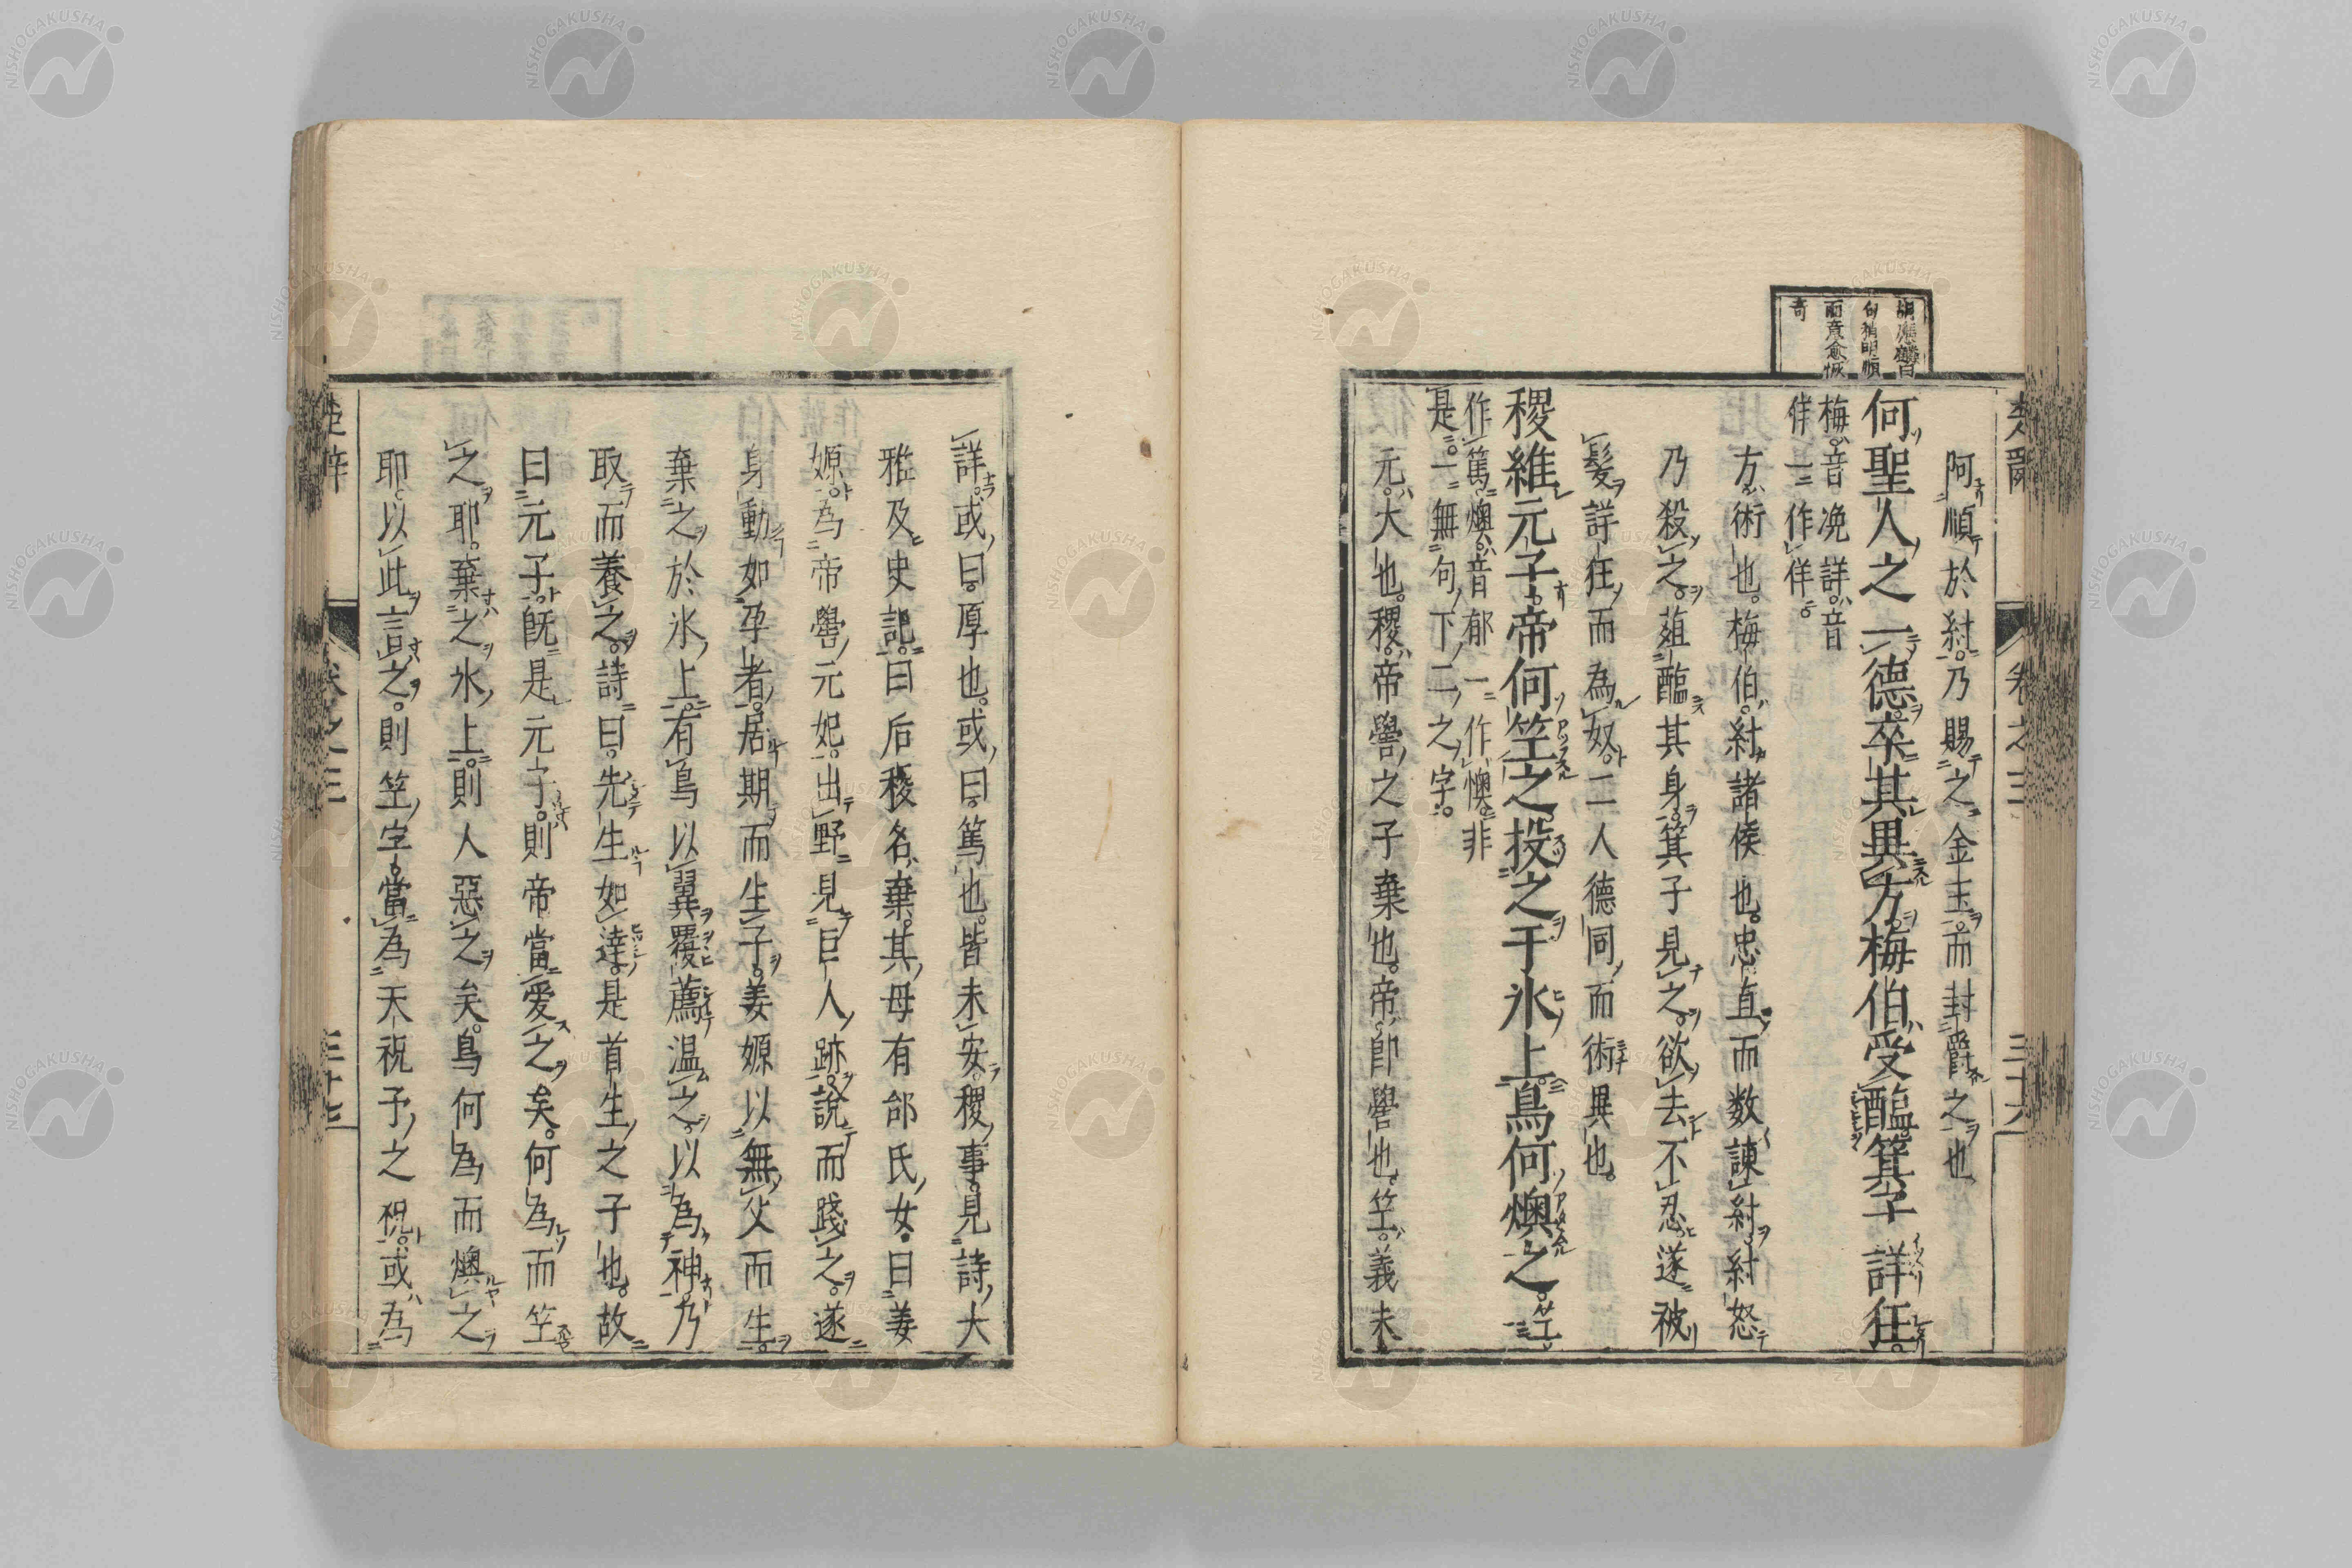 楚辭 卷之三 三十六
胡應麟曰
句稍明順
而意愈恢
奇
阿順於紂乃賜之金玉而封爵之也
何聖人之一德卒其異方梅伯受醢箕子詳狂
梅音浼詳音
佯一作佯
方術也梅伯紂諸侯也忠直而数諫紂紂怒
乃殺之葅醢其身箕子見之欲去不忍遂被
髮詳狂而為奴二人德同而術異也
稷維元子帝何竺之投之于氷上鳥何燠之竺一
作篤燠音郁一作懊非
是一無句下二之字
元大也稷帝嚳之子棄也帝即嚳也竺義未
詳或曰厚也或曰篤也皆未安稷事見詩大
雅及史記曰后稷名棄其母有邰氏女曰姜
嫄為帝嚳元妃出野見巨人跡說而踐之遂
身動如孕者居期而生子姜嫄以無父而生
棄之於氷上有鳥以翼覆薦温之以為神乃
取而養之詩曰先生如達是首生之子也故
曰元子既是元子則帝當愛之矣何為而竺
之耶棄之氷上則人惡之矣鳥何為而燠之
耶以此言之則竺字當為天祝予之祝或為
楚辭 卷之三 三十七